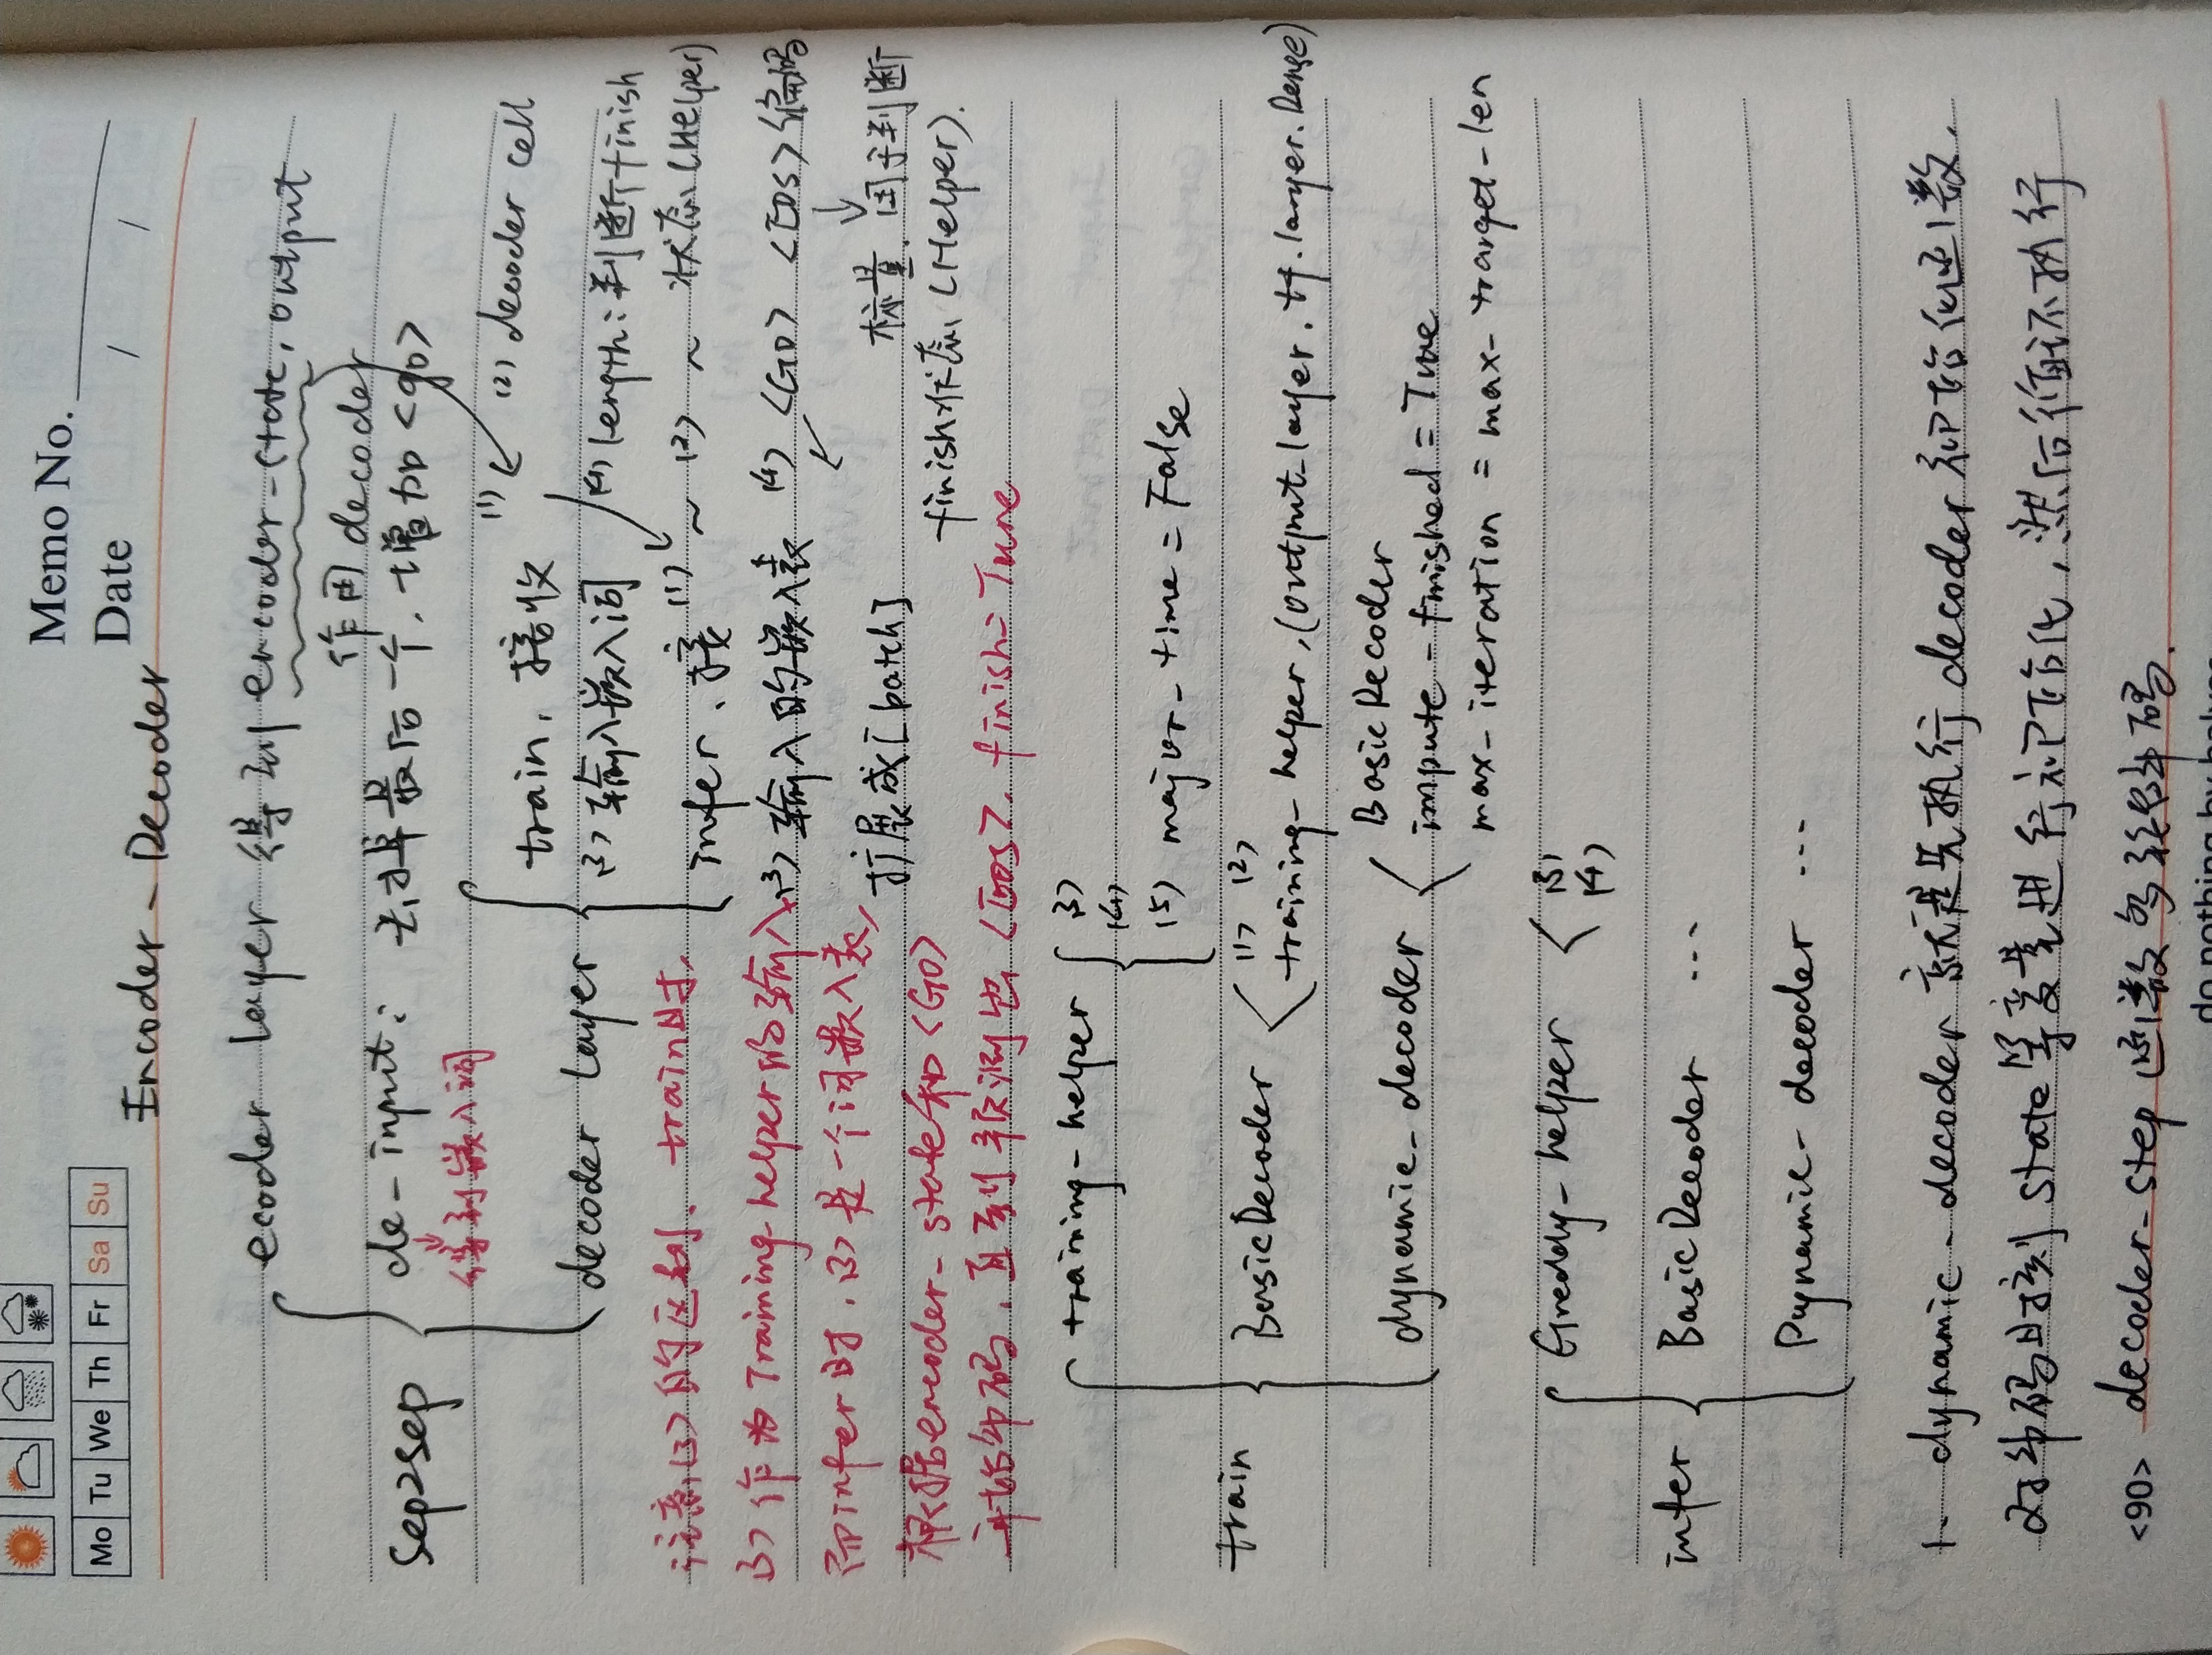 Memo No.
Mo Tu We Th Fr Sa Su
Date / /
Encoder - Decoder
ecoder layer 得到 encoder-state, output
作用 decoder
sep2sep
de-input: 去掉最后一个, 增加 <go>
得到嵌入词
decoder layer
train, 接收 (1) (2) decoder cell
(3) 输入嵌入词 (4) length: 判断finish
infer, 接 (1) ~ (2) ~ 状态 (Helper)
(3) 输入的嵌入表 (4) <GO> <EOS> 编码
扩展成[batch] 标量, 用于判断
finish状态 (Helper).
注意(3)的区别. train时,
(3) 作为 Training-helper的输入,
而infer时, (3) 是一个词嵌入表,
根据encoder-state和 <GO>
开始解码, 直到预测出 <EOS>, finish=True
train
training-helper
(3)
(4)
(5) major-time = False
BasicDecoder
(1) (2)
training-helper, (output-layer, tf.layer.Dense)
dynamic-decoder
BasicDecoder
impute-finished = True
max-iteration = max-trarget-len
infer
Greddy-helper
(3)
(4)
BasicDecoder ...
Dynamic-decoder ...
1. dynamic-decoder 就是先执行decoder初始化函数,
对解码时刻state等变量进行初始化, 然后循环执行
<90> decoder-step 函数多轮解码.
do nothing by halves